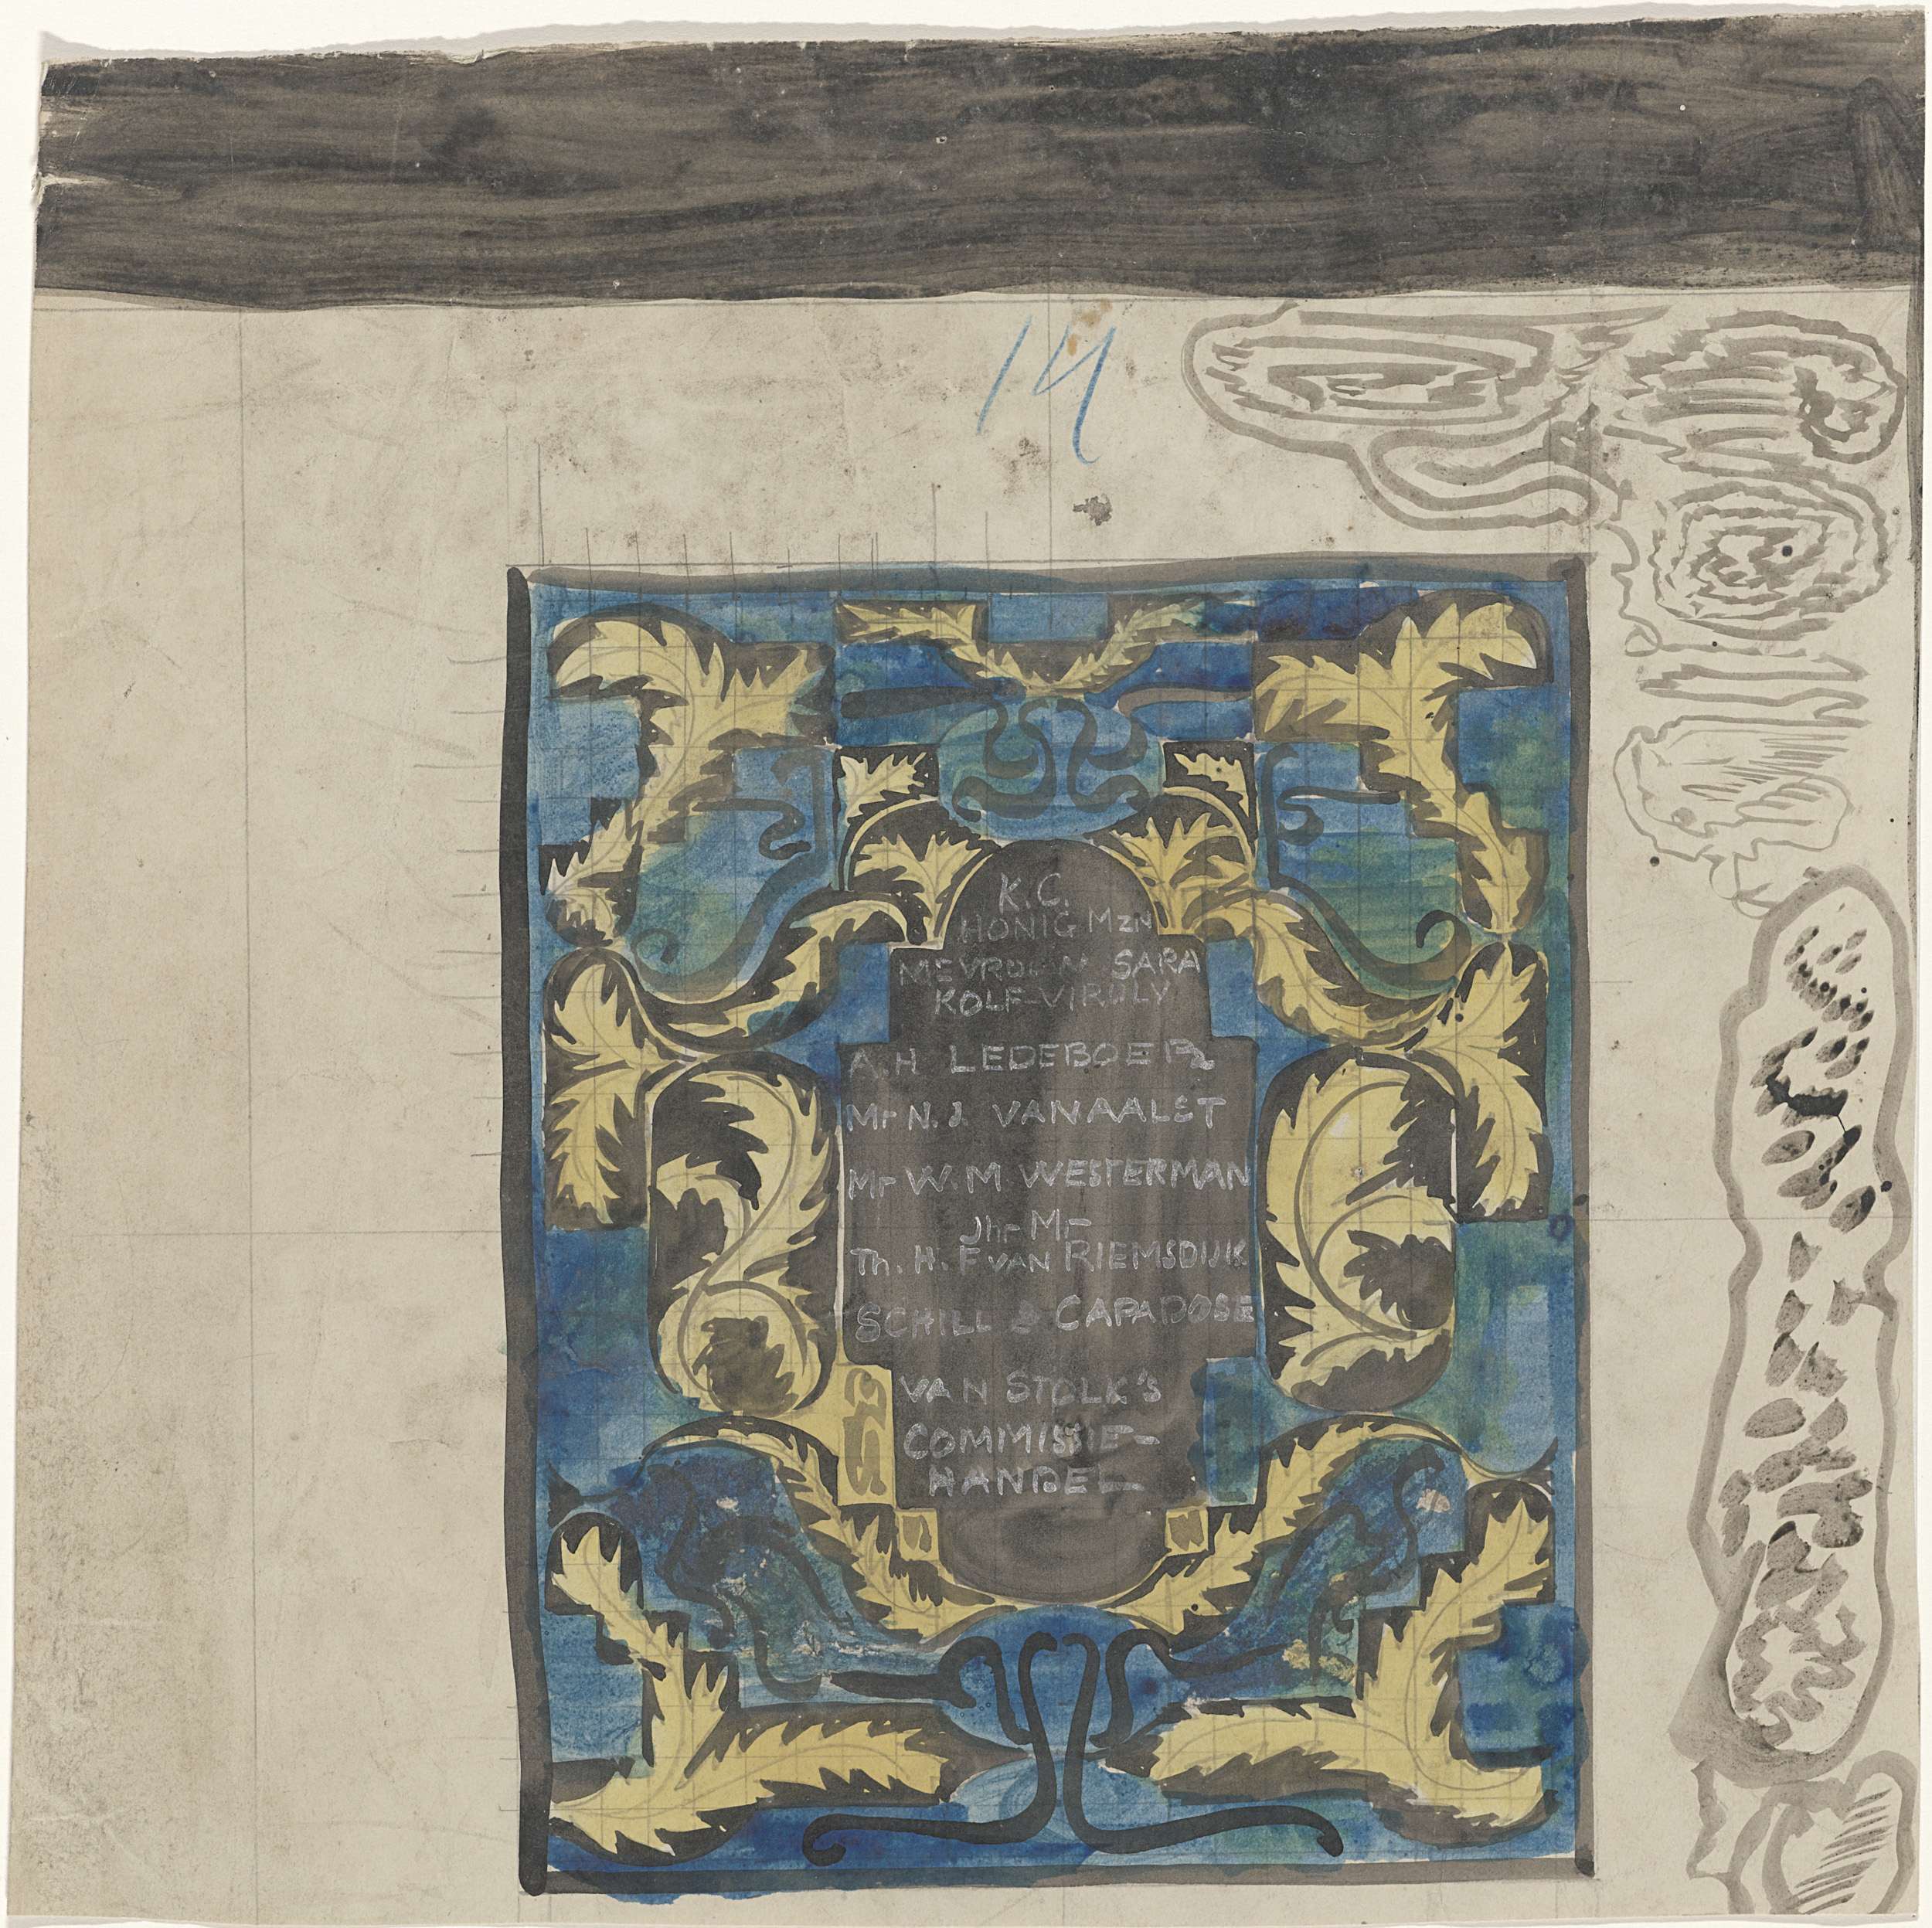 14
K.C.
HONIG MZN
MEVROUW SARA
KOLF-VIRULY
A.H LEDEBOER
Mr N.J. VAN AALST
Mr W.M. WESTERMAN
Jhr Mr
Th. H. F VAN RIEMSDIJK
SCHILL & CAPADOSE
VAN STOLK'S
COMMISSIE-
HANDEL